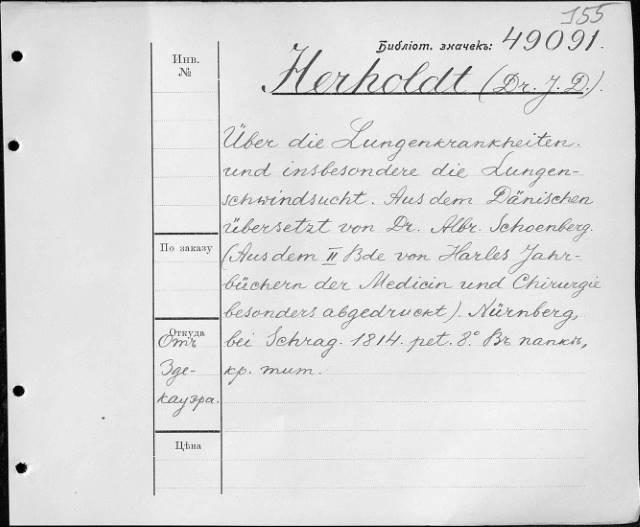 155
Библіот. значекъ: 49091.
Инв.
№
Herholdt (Dr. J. D.).
Über die Lungenkrankheiten
und insbesondere die Lungen-
schwindsucht. Aus dem Dänischen
übersetzt von Dr. Albr. Schoenberg.
(Aus dem II Bde von Harles Jahr-
büchern der Medicin und Chirurgie
besonders abgedruckt). Nürnberg,
bei Schrag. 1814. pet. 8.° Въ папкѣ,
кр. тит.
По заказу
Откуда
Отъ
Зде-
кауэра.
Цѣна